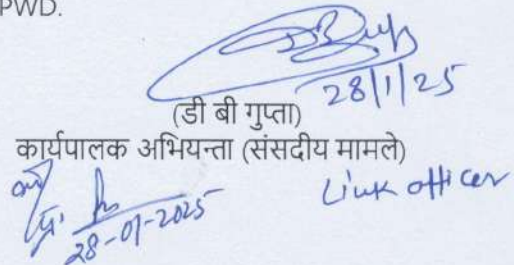 PWD.
28/1/25
(डी बी गुप्ता)
कार्यपालक अभियन्ता (संसदीय मामले)
Link officer
28-01-2025